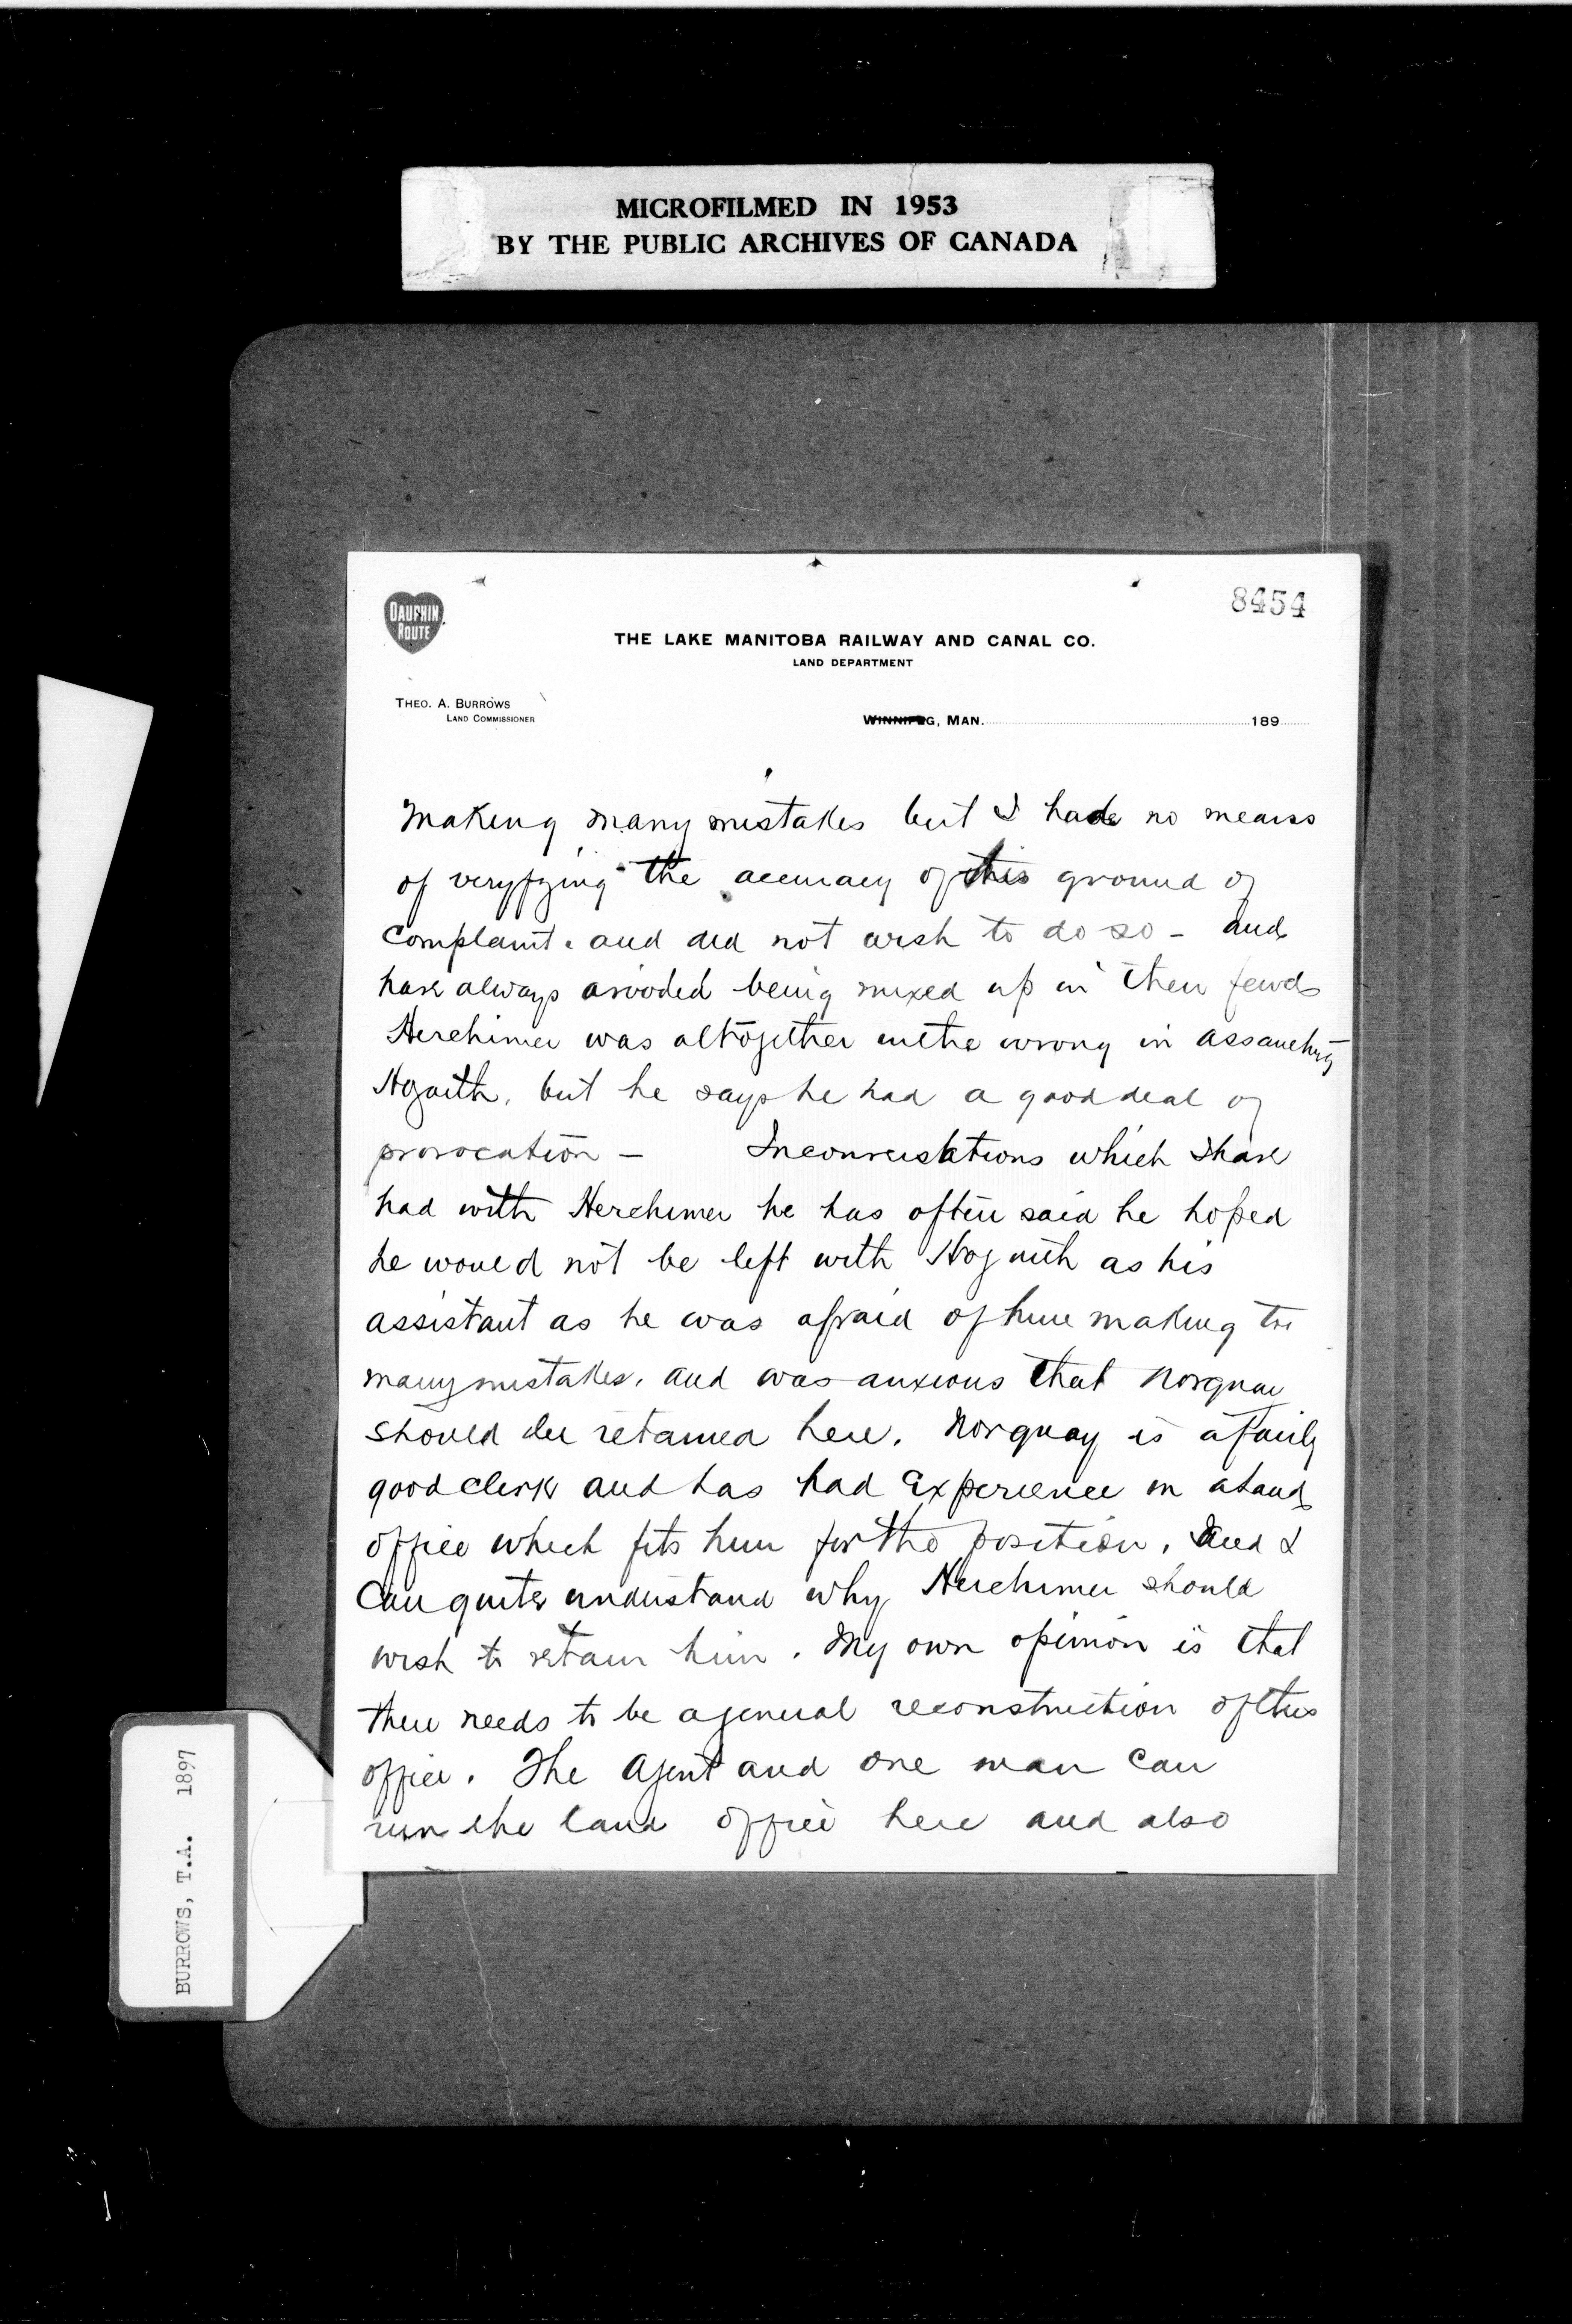 MICROFILMED IN 1953
BY THE PUBLIC ARCHIVES OF CANADA
DAUPHIN
ROUTE
8454
THE LAKE MANITOBA RAILWAY AND CANAL CO.
LAND DEPARTMENT
THEO. A. BURROWS
LAND COMMISSIONER
WINNIPEG, MAN. 189
making many mistakes but I had no means
of veryfying the accuracy of this ground of
complaint. and did not wish to do so - and
have always avoided being mixed up in their feuds
Herchimer was altogether in the wrong in assaulting
but he says he had a good deal of
provocation - In conversations which I have
had with Herchimer he has often said he hoped
he would not be left with as his
assistant as he was afraid of him making too
many mistakes. and was anxious that Norquay
should be retained here. Norquay is a fairly
good clerk and has had experience in a land
office which fits him for the position. and I
can quite understand why Herchimer should
wish to retain him. My own opinion is that
there needs to be a general reconstruction of this
office. The Agent and one man can
run the land office here and also
BURROWS, T.A. 1897